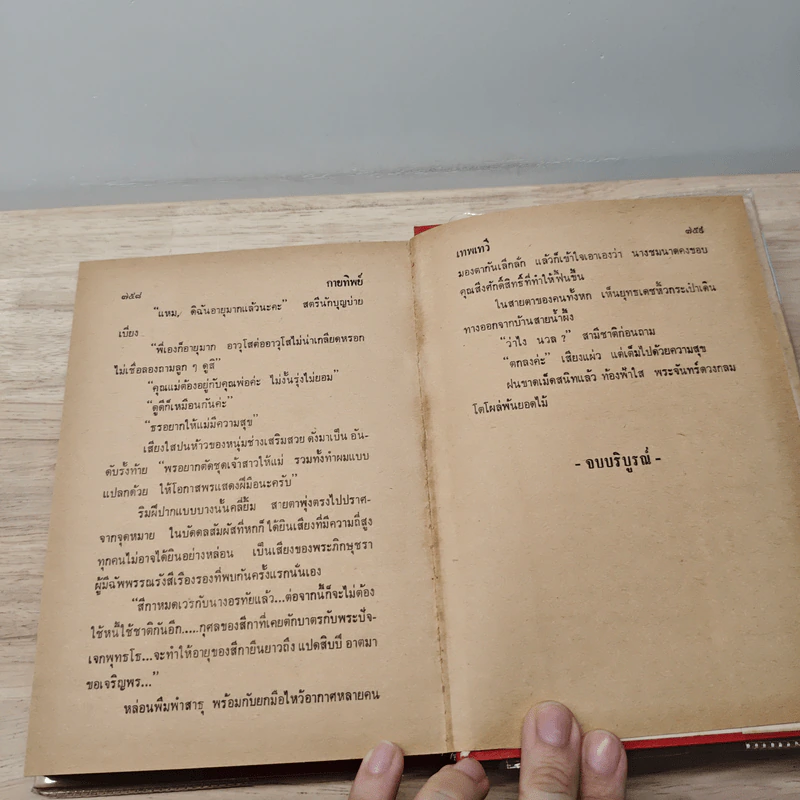 ๗๕๘ กายทิพย์
"แหม, ดิฉันอายุมากแล้วนะคะ" สตรีนักบุญบ่าย
เบี่ยง
"พี่เองก็อายุมาก อาวุโสต่ออาวุโสไม่น่าเกลียดหรอก
ไม่เชื่อลองถามลูก ๆ ดูสิ"
"คุณแม่ต้องอยู่กับคุณพ่อค่ะ ไม่งั้นรุ่งไม่ยอม"
"ตูดี้ก็เหมือนกันค่ะ"
"ธรอยากให้แม่มีความสุข"
เสียงใสปนห้าวของหนุ่มช่างเสริมสวย ดังมาเป็น อัน-
ดับรั้งท้าย "พรอยากตัดชุดเจ้าสาวให้แม่ รวมทั้งทำผมแบบ
แปลกด้วย ให้โอกาสพรแสดงฝีมือนะครับ"
ริมฝีปากแบบบางนั้นคลี่ยิ้ม สายตาพุ่งตรงไปปราศ-
จากจุดหมาย ในบัดดลสัมผัสที่หกก็ได้ยินเสียงที่มีความถี่สูง
ทุกคนไม่อาจได้ยินอย่างหล่อน เป็นเสียงของพระภิกษุชรา
ผู้มีฉัพพรรณรังสีเรืองรองที่พบกันครั้งแรกนั่นเอง
"สีกาหมดเวรกับนางอรทัยแล้ว...ต่อจากนี้ก็จะไม่ต้อง
ใช้หนี้ใช้ชาติกันอีก.....กุศลของสีกาที่เคยตักบาตรกับพระปัจ-
เจกพุทธโธ...จะทำให้อายุของสีกายืนยาวถึง แปดสิบปี อาตมา
ขอเจริญพร..."
หล่อนพึมพำสาธุ พร้อมกับยกมือไหว้อากาศหลายคน
เทพเทวี ๗๕๙
มองตากันเลิ่กลั่ก แล้วก็เข้าใจเอาเองว่า นางชมนาดคงขอบ
คุณสิ่งศักดิ์สิทธิ์ที่ทำให้ฟื้นขึ้น
ในสายตาของคนทั้งหก เห็นยุทธเดชหิ้วกระเป๋าเดิน
ทางออกจากบ้านสายน้ำผึ้ง
"ว่าไง นวล ?" สามีชาติก่อนถาม
"ตกลงค่ะ" เสียงแผ่ว แต่เต็มไปด้วยความสุข
ฝนขาดเม็ดสนิทแล้ว ท้องฟ้าใส พระจันทร์ดวงกลม
โตโผล่พ้นยอดไม้
- จบบริบูรณ์ -